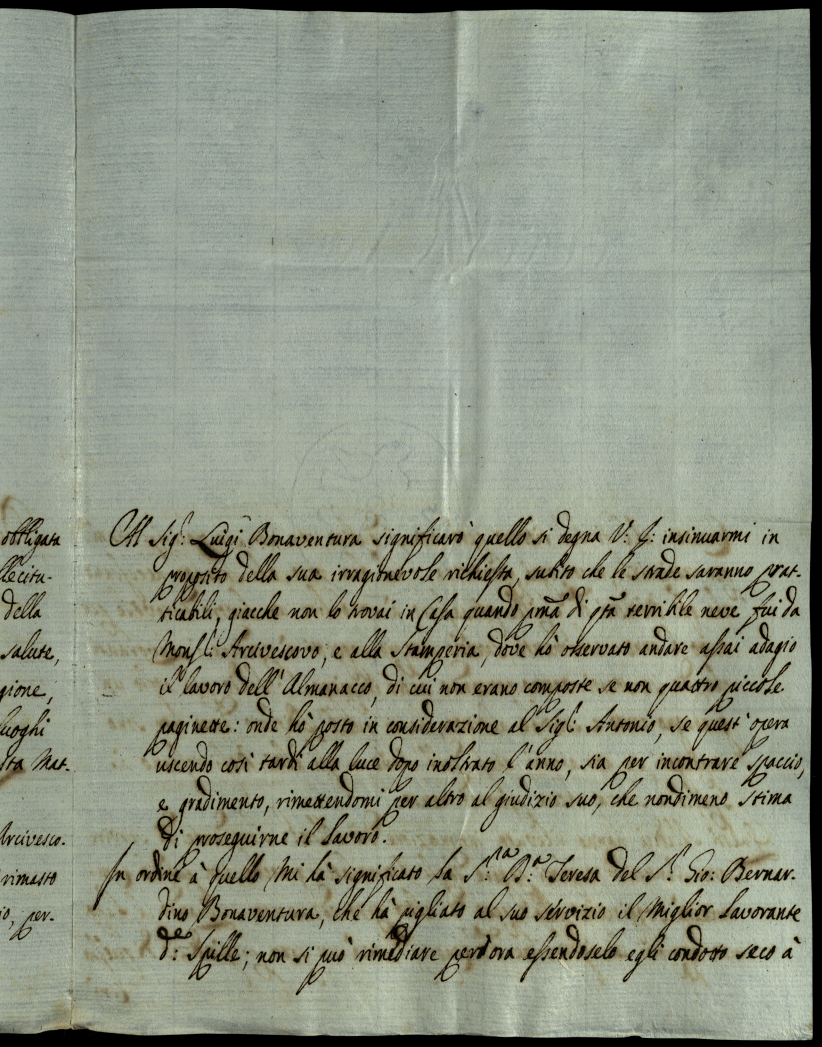 obbligata
llecitu-
della
salute,
gione,
luoghi
sta Mat.
Arcivesco.
rimasto
io, per-
Al Sig:r Luigi Bonaventura significarò quello si degna V: S: insinuarmi in
proposito della sua irragionevole richiesta, subito che le strade saranno prat-
ticabili, giacche non lo trovai in Casa quando pma di qta terribile neve fui da
Monsi:r Arcivescovo, e alla Stamperia, dove hò osservato andare assai adagio
il lavoro dell'Almanacco, di cui non erano composte se non quattro piccole
paginette: onde hò posto in considerazione al Sig:r Antonio, se quest'opera
uscendo così tardi alla luce dopo inoltrato l'anno, sia per incontrare spaccio,
e gradimento, rimettendomi per altro al giudizio suo, che nondimeno stima
di proseguirne il lavoro.
In ordine à quello mi hà significato la S:ra B:a Teresa del S:r Gio: Bernar-
dino Bonaventura, che hà pigliato al suo servizio il miglior Lavorante
de: Spille; non si può rimediare perora essendoselo egli condotto seco à